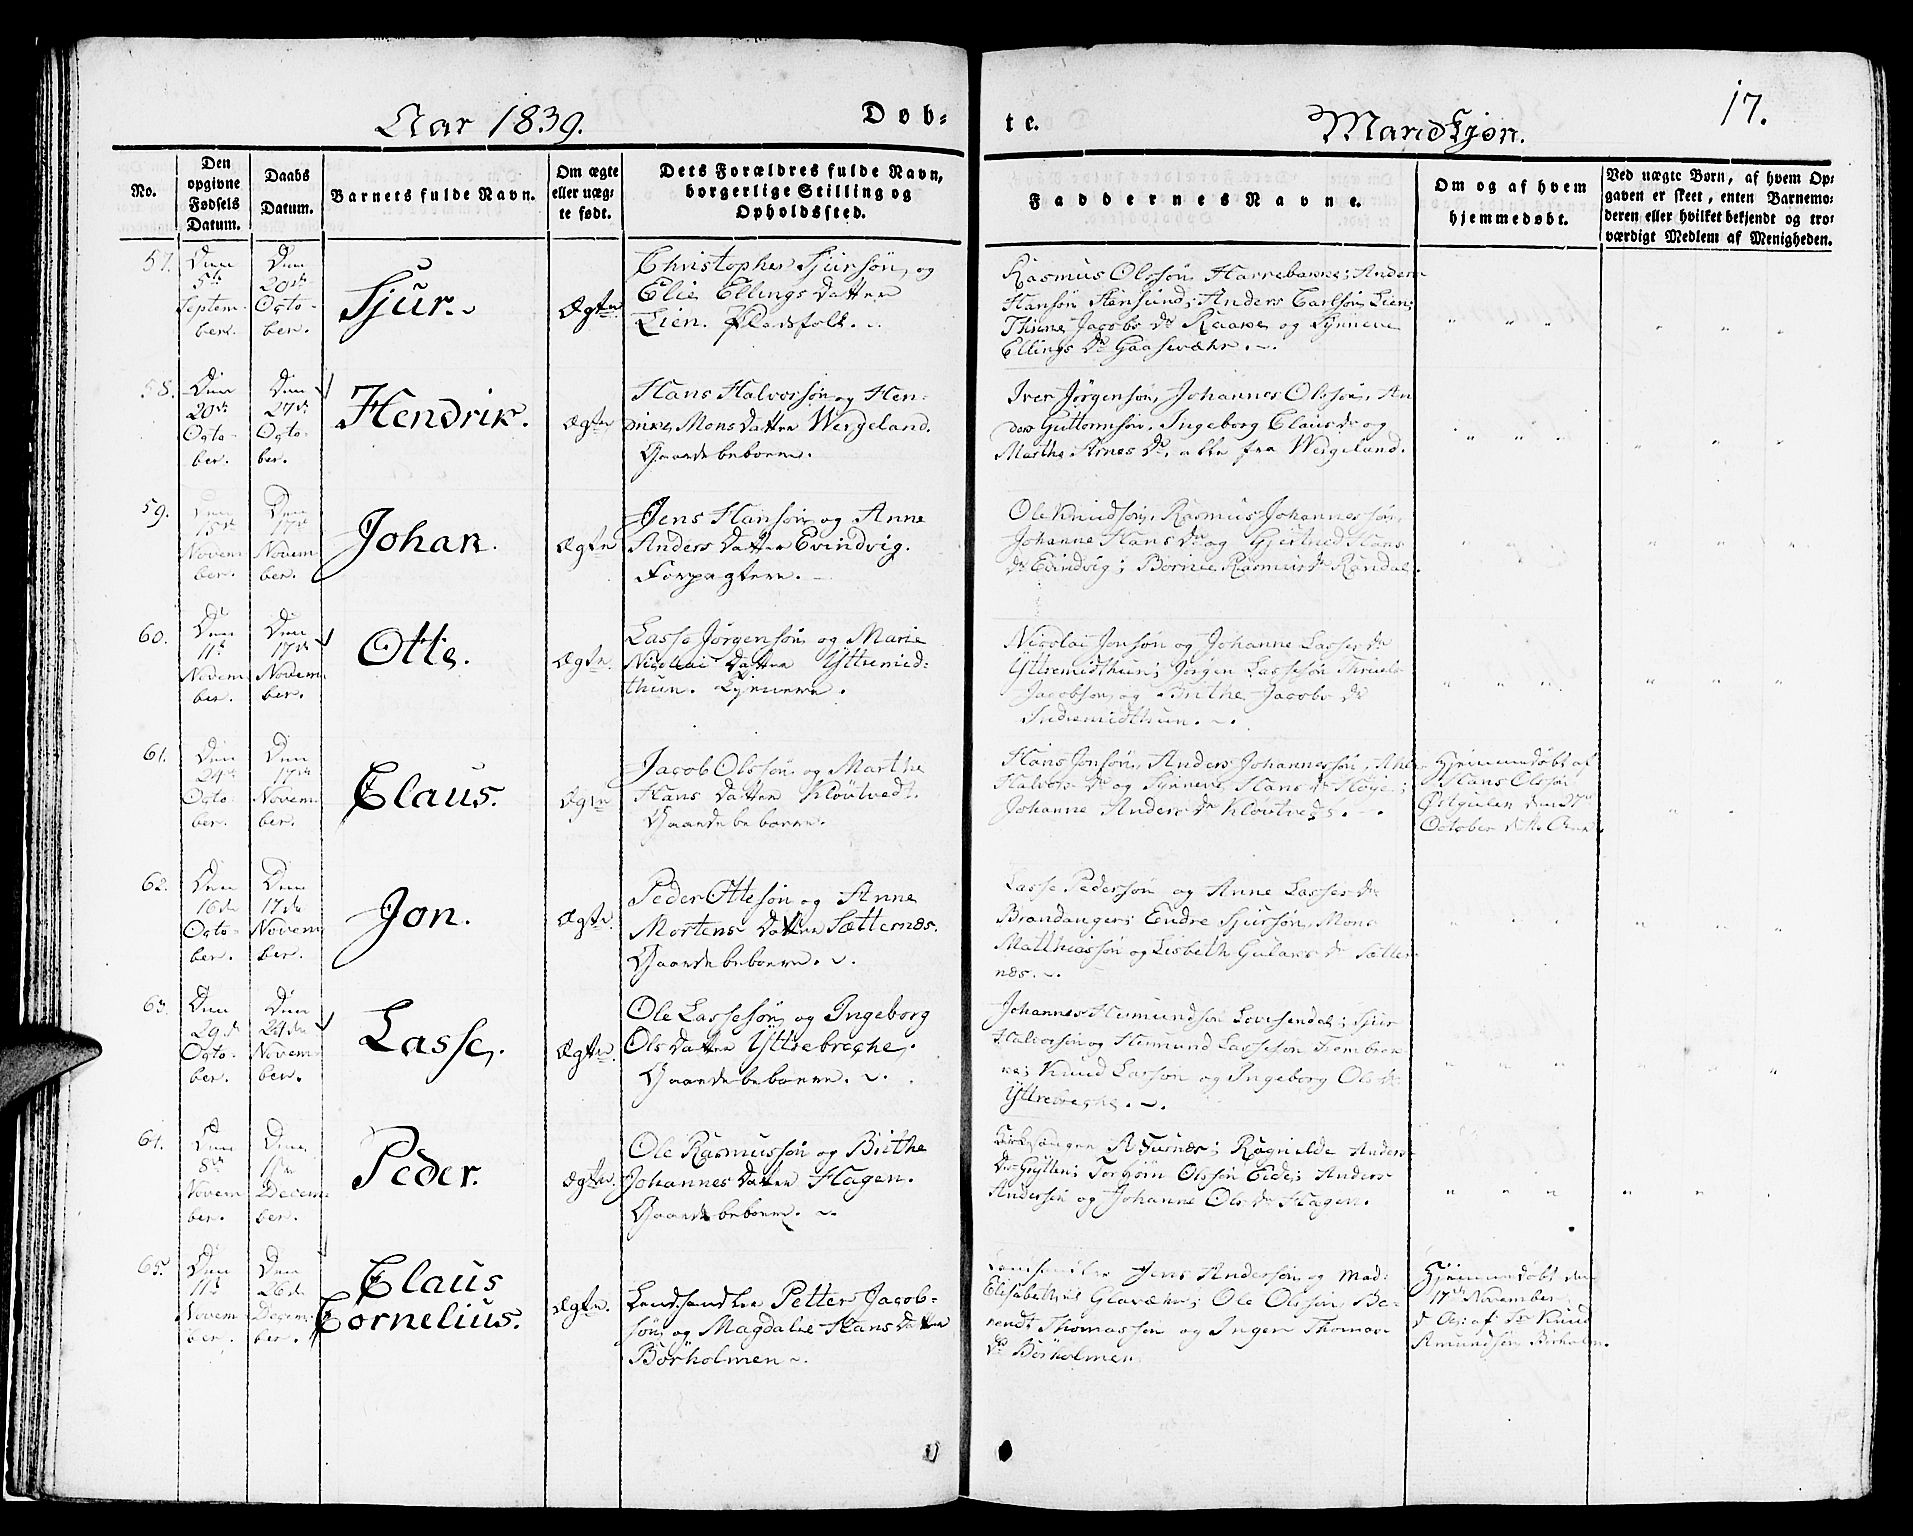 Aar 1839.
Døb-
te.
Mandkjøn.
17.
No.
Den
opgivne
Fødsels
Datum.
Daabs
Datum.
Barnets fulde Navn.
Om ægte
eller uæg-
te født.
Dets Forældres fulde Navn,
borgerlige Stilling og
Opholdssted.
Faddernes Navne.
Om og af hvem
hjemmedøbt.
Ved uægte Børn, af hvem Op-
gaven er skeet, enten Barnemo-
deren eller hvilket bekjendt og tro-
værdigt Medlem af Menigheden.
57.
Den
5te
Septem-
ber.
Den
20de
Octo-
ber.
Sjur.
Ægte
Christopher Sjursøn og
Elie Ellings Datter
Lien. Pladsfolk.
Rasmus Olssøn Anders
Hansøn Anders Carlsøn Lien;
Jacobs Dr og Synneve
Ellings Dr Gaasevæhr.
58.
Den
20de
Octo-
ber.
Den
27de
Octo-
ber.
Hendrik.
Ægte
Hans Halvorsøn og Hen-
rikke Mons Datter Wergeland.
Gaardbeboere.
Iver Jørgensøn, Johannes Olssøn, An-
ders Guttormsøn, Ingeborg Claus Dr og
Marthe Arnes Dr, alle fra Wergeland.
59.
Den
15de
Novem
ber.
Den
17de
Novem
ber.
Johan.
Ægte
Jens Hansøn og Anne
Anders Datter Evindvig.
Forpagtere.
Ole Knudsøn, Rasmus Johannessøn,
Johanne Hans Dr og Gjertrud Hans
Dr Evindvig; Rasmus Dr Randal.
60.
Den
11te
Novem
ber.
Den
17de
Novem
ber.
Otte.
Ægte.
Lasse Jørgensøn og Marie
Nicolai Datter Yttremid-
thun. Tjenere.
Nicolai Jonsøn og Johanne Lasses Dr
Yttremidthun; Jørgen Lassesøn
Jacobsøn og Brithe Jacobs Dr
Indremidthun.
61.
Den
24de
Octo-
ber.
Den
17de
Novem
ber.
Claus.
Ægte
Jacob Olssøn og Marthe
Hans Datter Kløvtvedt.
Gaardbeboere.
Hans Jonsøn, Anders Johannessøn,
Halvors Dr og Synneve Hans Dr Høye;
Johanne Anders Dr Kløvtvedt.
Hjemmedøbt af
Hans Olssøn
Østgulen den 27de
October
62.
Den
16de
Octo-
ber.
Den
17de
Novem
ber.
Jon.
Ægte.
Peder Ottesøn og Anne
Mortens Datter Sætternæs.
Gaardbeboere.
Lasse Pedersøn og Anne Lasses Dr
Brandanger; Endre Sjursøn, Mons
Matthiassøn og Lisbeth Gulaks Dr Sætter-
næs.
63.
Den
29de
Octo-
ber.
Den
24de
Novem
ber.
Lasse.
Ægte.
Ole Lassesøn og Ingeborg
Ols Datter Yttrebrekke.
Gaardbeboere.
Johannes Hermundsøn Sjur
Halvorsøn og Hermund Lassesøn
Knud Larsøn og Ingeborg Ols Dr
Yttrebrekke.
64.
Den
8de
Novem
ber.
Den
1ste
Decem-
ber.
Peder.
Ægte.
Ole Rasmussøn og Brithe
Johannes Datter Hagen.
Gaardbeboere.
Kirkesanger Ragnilde Anders
Dr Torbjørn Olssøn Eide; Anders
Andersøn og Johanne Ols Dr Hagen.
65.
Den
11te
Novem
ber.
Den
26de
Decem-
ber.
Claus
Cornelius.
Ægte.
Landhandler Petter Jacob-
søn og Magdalie Hans Datter
Børholmen.
Landhandler Jens Andersøn og Mad.
Elisabeth Glavæhr; Ole Olssøn, Be-
rendt Thomassøn og Inger Thomas
Dr Børholmen.
Hjemmedøbt den
17de November
af Knud
Amundsøn